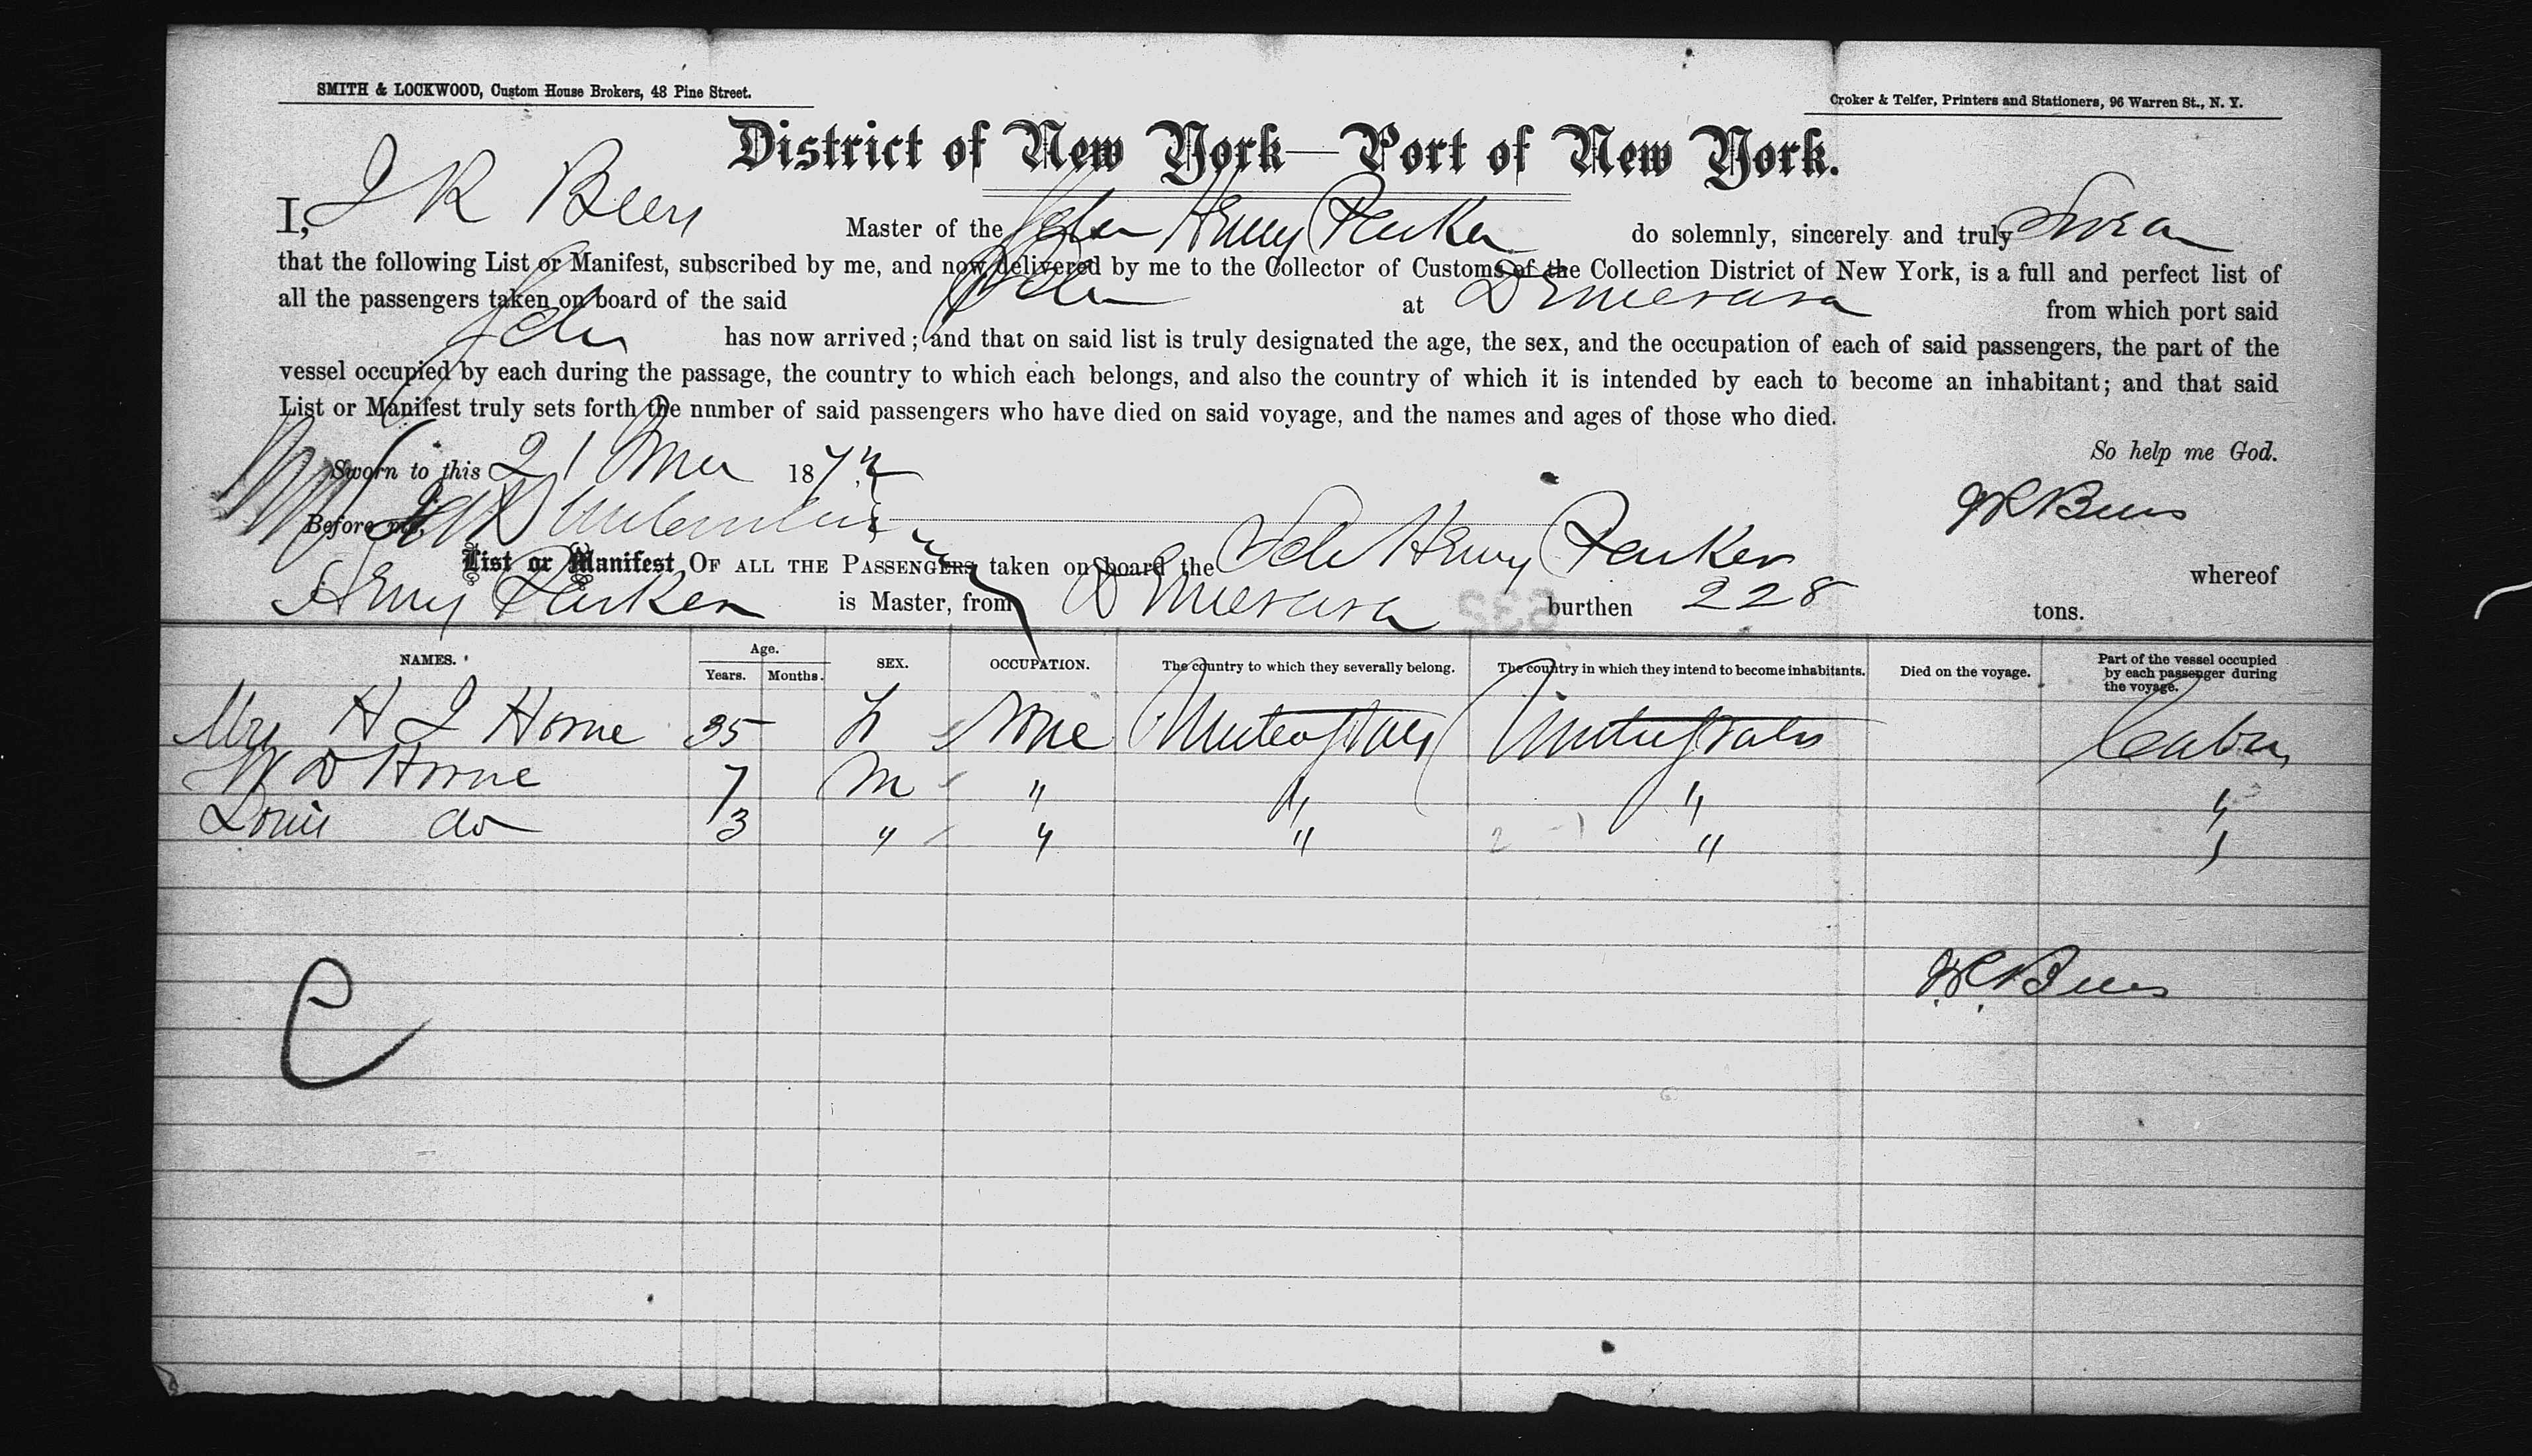 SMITH & LOCKWOOD, Custom House Brokers, 48 Pine Street.
Croker & Telfer, Printers and Stationers, 96 Warren St., N. Y.
District of New York—Port of New York.
I, J R Beers Master of the Schr Henry Parker do solemnly, sincerely and truly Swear
that the following List or Manifest, subscribed by me, and now delivered by me to the Collector of Customs of the Collection District of New York, is a full and perfect list of
all the passengers taken on board of the said Schr at Demerara from which port said
Schr has now arrived; and that on said list is truly designated the age, the sex, and the occupation of each of said passengers, the part of the
vessel occupied by each during the passage, the country to which each belongs, and also the country of which it is intended by each to become an inhabitant; and that said
List or Manifest truly sets forth the nnmber of said passengers who have died on said voyage, and the names and ages of those who died.
So help me God.
Sworn to this 21 187
J R Beers
Before me,
List or Manifest OF ALL THE PASSENGERS taken on board the Schr Henry Parker whereof
Henry Parker is Master, from Demerara burthen 228 tons.
NAMES. Age. Years. Months. SEX. OCCUPATION. The country to which they severally belong. The country in which they intend to become inhabitants. Died on the voyage. Part of the vessel occupied by each passenger during the voyage.
Mrs H J Horne 35 None United States United States Cabin
W D Horne 7 M " " " "
Louis do 3 " " " " "
J R Beers
C